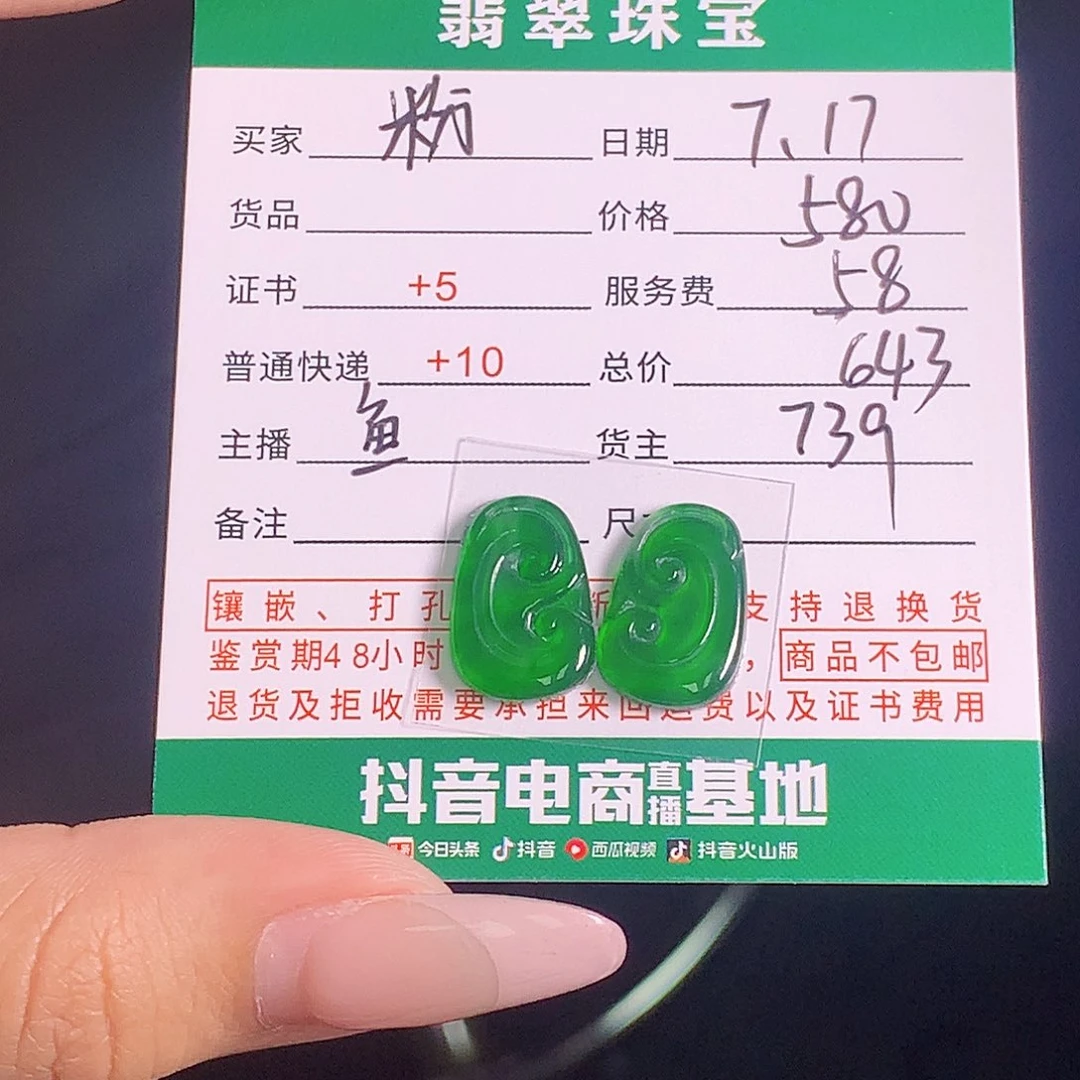 翡翠珠宝
买家 粉 日期 7、17
货品 价格 580
证书 +5 服务费 58
普通快递 +10 总价 643
主播 鱼 货主 739
备注
镶嵌、打孔 支持退换货
鉴赏期48小时 ，商品不包邮
退货及拒收需要承担来回运费以及证书费用
抖音电商直播基地
今日头条 抖音 西瓜视频 抖音火山版